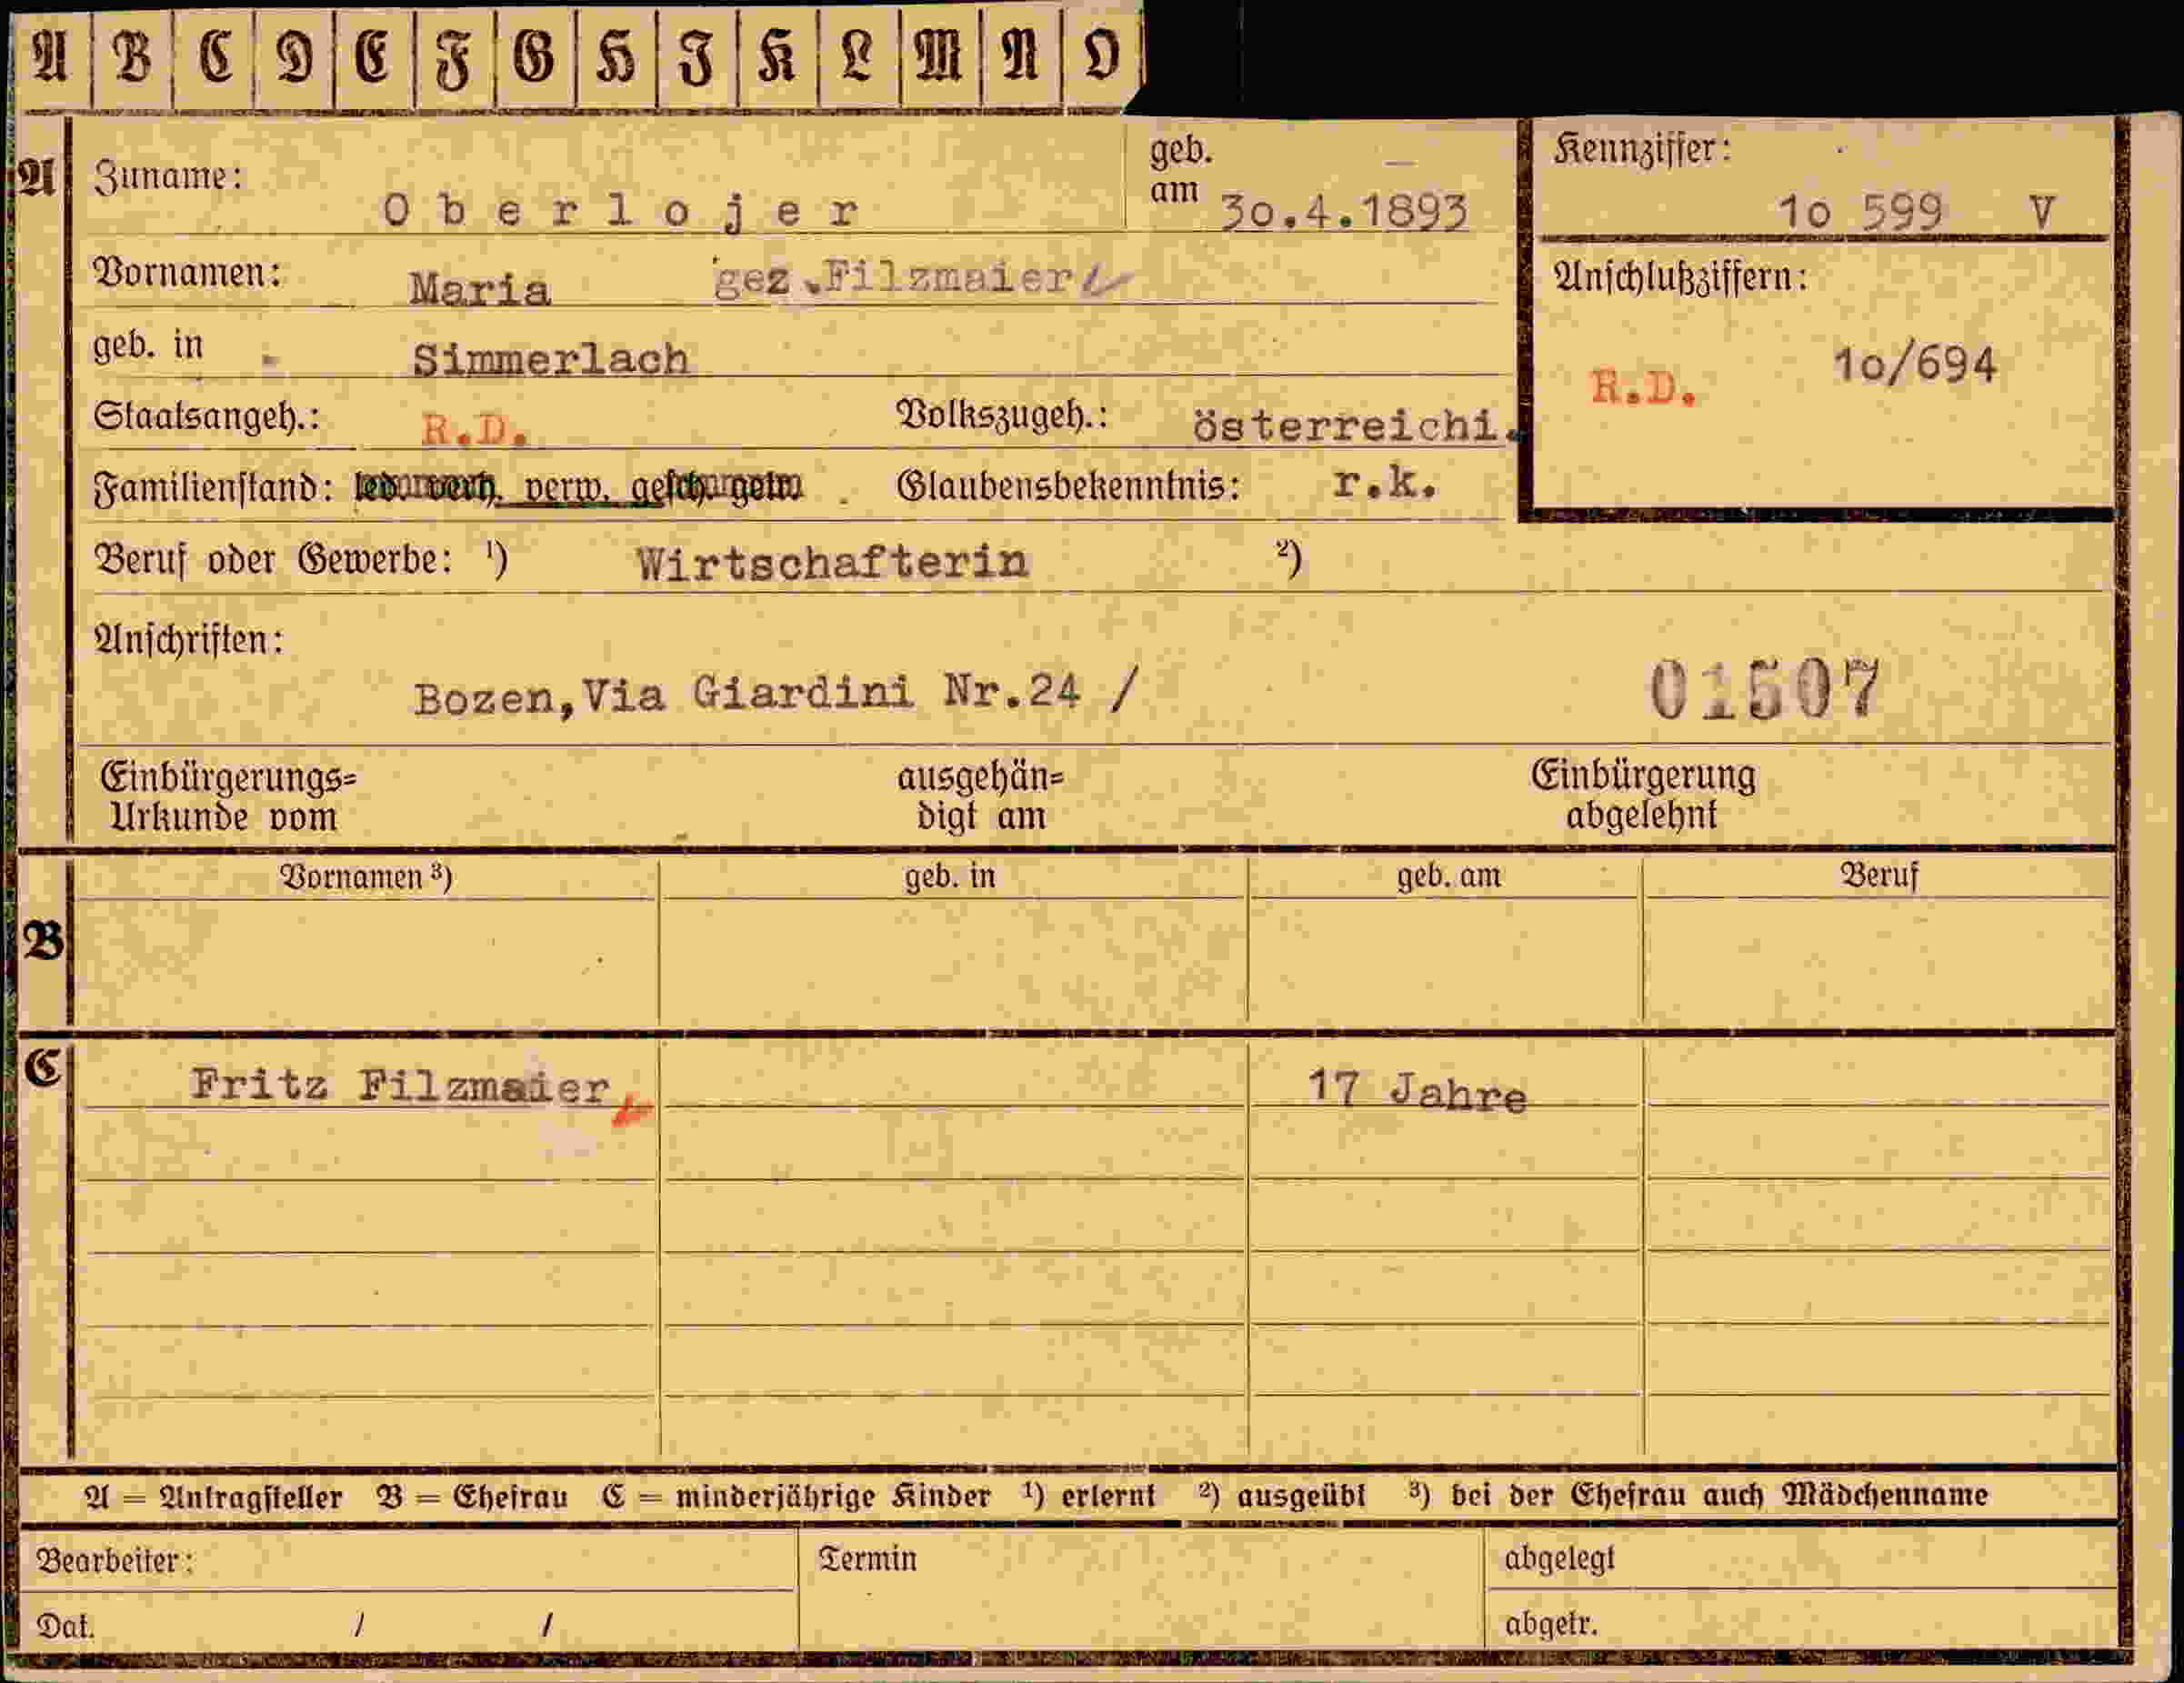 A B C D E F G H I K L M N O
A Zuname: Oberlojer geb. am 30.4.1893 Kennziffer: 10 599 V
Vornamen: Maria gez.Filzmaier Anschlußziffern:
geb. in Simmerlach R.D. 10/694
Staatsangeh.: R.D. Volkszugeh.: österreichi.
Familienstand: verw. Glaubensbekenntnis: r.k.
Beruf oder Gewerbe: ¹) Wirtschafterin ²)
Anschriften:
Bozen,Via Giardini Nr.24 / 01507
Einbürgerungs= ausgehän= Einbürgerung
Urkunde vom digt am abgelehnt
Vornamen ³) geb. in geb. am Beruf
B
C Fritz Filzmaier 17 Jahre
A = Antragsteller B = Ehefrau C = minderjährige Kinder ¹) erlernt ²) ausgeübt ³) bei der Ehefrau auch Mädchenname
Bearbeiter: Termin abgelegt
Dat. / / abgetr.